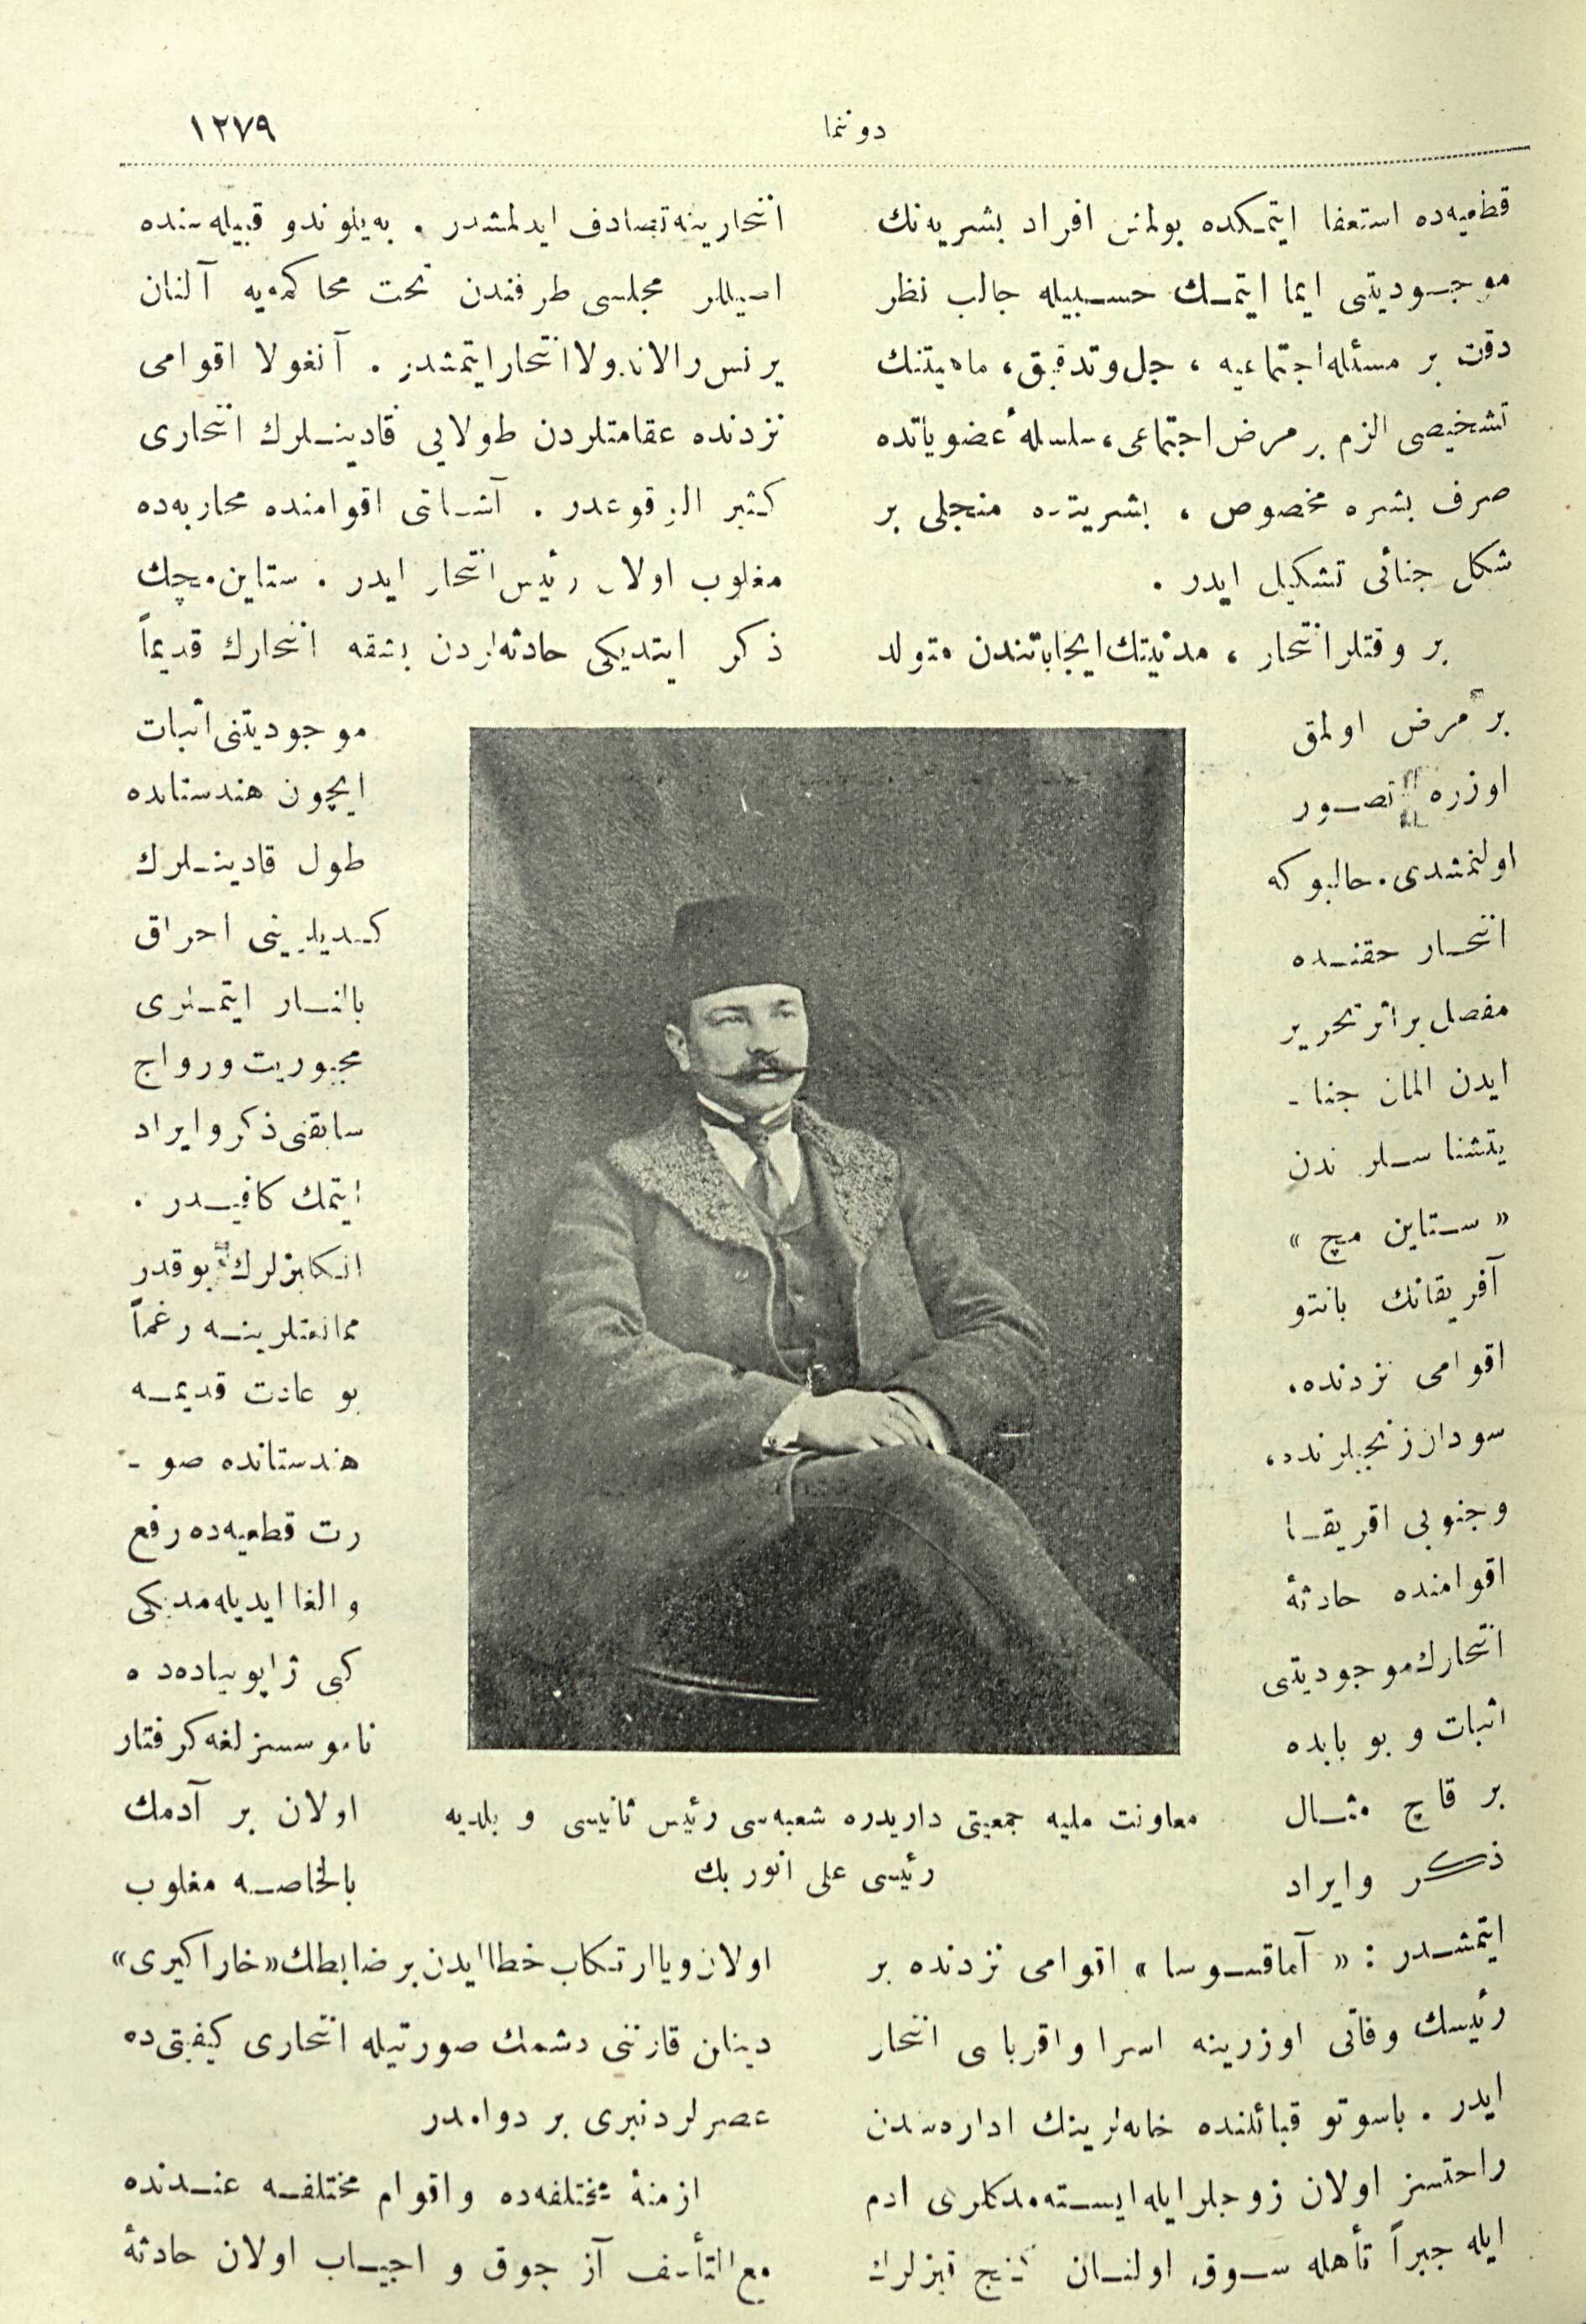 دوننما
١٢٧٩
قطعیه‌ده استعفا ایتمكده بولنان افراد بشریه‌نك
موجودیتنی ایما ایتمك حسبیله جالب نظر
دقت بر مسئله اجتماعیه ، حل و تدقیق، ماهیتنك
تشخیصی الزم بر مرض اجتماعی، سلسلهٔ عضویاتده
صرف بشره مخصوص ، بشریتده منجلی بر
شكل جنائی تشكیل ایدر .
بر وقتلر انتحار ، مدنیتك ایجاباتندن متولد
بر مرض اولمق
اوزره تصور
اولنمشدی. حالبوكه
انتحار حقنده
مفصل بر اثر تحریر
ایدن المان جنا -
یتشناسلر ندن
« ستاین مچ »
آفریقانك بانتو
اقوامی نزدنده،
سودان زنجیلرنده،
و جنوبی افریقا
اقوامنده حادثهٔ
انتحارك موجودیتنی
اثبات و بو بابده
بر قاچ مثال
ذكر و ایراد
ایتمشدر : « آماقسوسا » اقوامی نزدنده بر
رئیسك وفاتی اوزرینه اسرا و اقربای انتحار
ایدر . باسوتو قبائلنده خانه‌لرینك اداره‌سندن
راحتسز اولان زوجلر ایله ایسته‌مدكلری ادم
ایله جبراً تأهله سوق اولنان كنج قیزلرك
انتحارینه تصادف ایدلمشدر . به‌یلوندو قبیله‌سنده
اصیللر مجلسی طرفندن تحت محاكمه‌یه آلنان
پرنس رالاندولا انتحار ایتمشدر . آنغولا اقوامی
نزدنده عقامتلردن طولایی قادینلرك انتحاری
كثیر الوقوعدر . آشانتی اقوامنده محاربه‌ده
مغلوب اولان رئیس انتحار ایدر . ستاین مچك
ذكر ایتدیكی حادثه‌لردن بشقه انتحارك قدیماً
موجودیتنی اثبات
ایچون هندستانده
طول قادینلرك
كندیلرینی احراق
بالنار ایتمه‌لری
مجبوریت و رواج
سابقنی ذكر و ایراد
ایتمك كافیدر .
انكلیزلرك بو قدر
ممانعتلرینه رغماً
بو عادت قدیمه
هندستانده صو -
رت قطعیه‌ده رفع
و الغا ایدیله‌مدیكی
كبی ژاپونیاده‌ده
ناموسسزلغه كرفتار
اولان بر آدمك
بالخاصه مغلوب
اولان ویا ارتكاب خطا ایدن بر ضابطك «خاراكیری»
دینان قارننی دشمك صورتیله انتحاری كیفیتی‌ده
عصرلردنبری بر دوامدر
ازمنهٔ مختلفه‌ده و اقوام مختلفه عندنده
مع التأسف آز جوق و اجیاب اولان حادثهٔ
معاونت ملیه جمعیتی داریدره شعبه‌سی رئیس ثانیسی و بلدیه
رئیسی علی انور بك